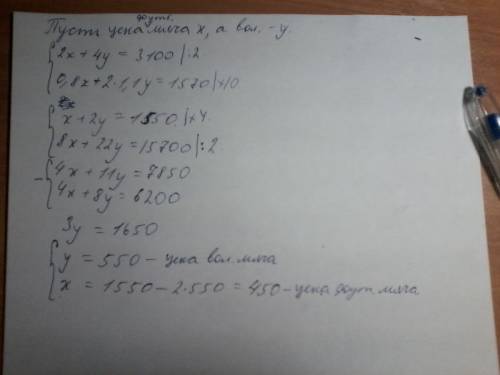 футб.
Пусть цена мяча x, а вол. - y.
2x + 4y = 3100 |:2
0,8x + 2·1,1y = 1570 |×10
x + 2y = 1550 |×4
8x + 22y = 15700 |:2
4x + 11y = 7850
4x + 8y = 6200
3y = 1650
y = 550 - цена вол. мяча
x = 1550 - 2·550 = 450 - цена футб. мяча